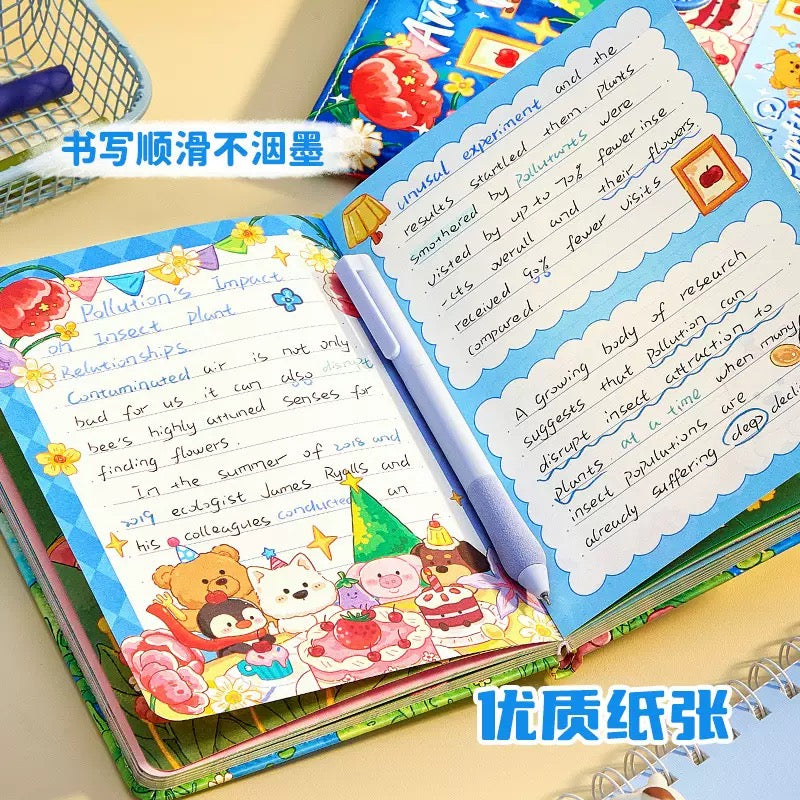 书写顺滑不洇墨
Pollution's Impact
on Insect Plant
Relationships.
Contaminated air is not only
bad for us it can also disrupt
bee's highly attuned senses for
finding flowers.
In the summer of 2018 and
2019 ecologist James Ryalls and
his colleagues conducted an
unusual experiment and the
results startled them. Plants
smothered by Pollutants were
visited by up to 70% fewer inse
-cts overall and their flowers
received 90% fewer visits
compared.
A growing body of research
suggests that pollution can
disrupt insect attraction to
plants at a time when many
insect populations are
already suffering deep
优质纸张